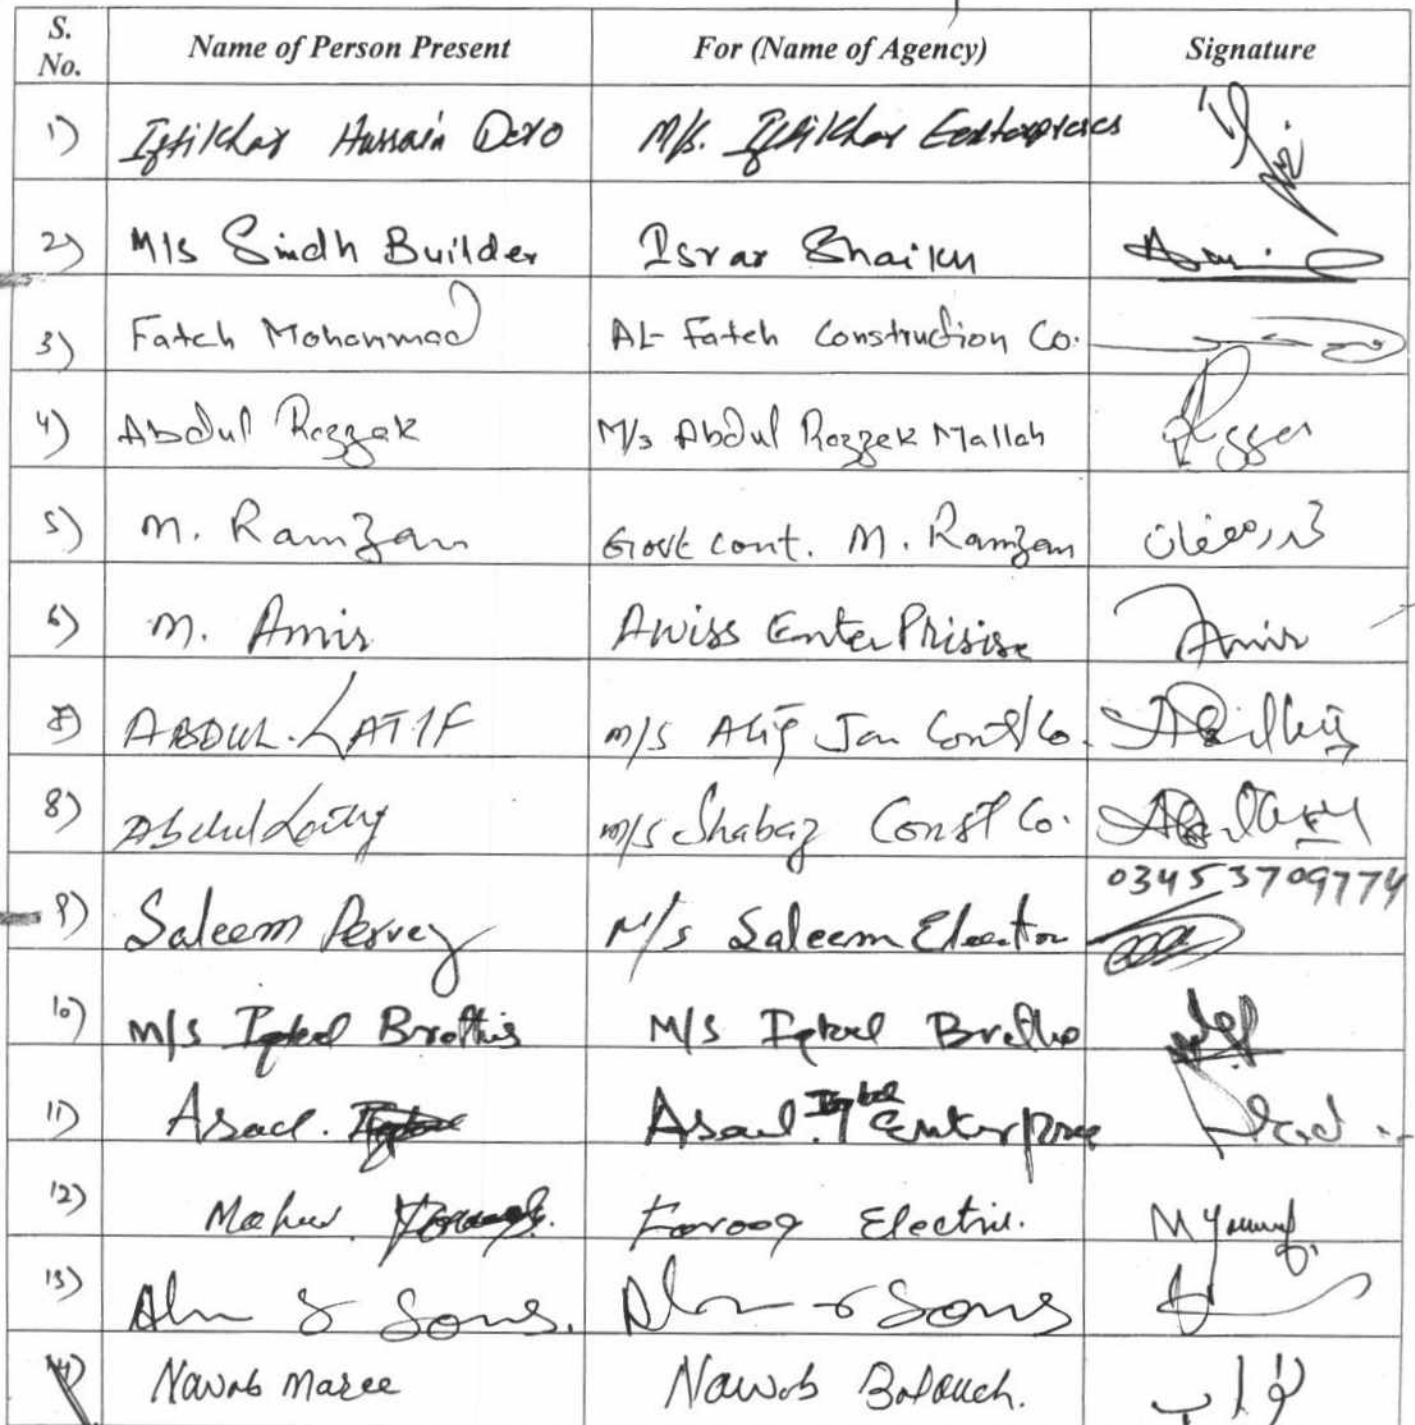 S. No. Name of Person Present For (Name of Agency) Signature
1) Iftikhar Hussain Dero M/s. Iftikhar Eenterprises
2) M/s Sindh Builder Israr Shaikh
3) Fateh Mohammad AL-Fateh Construction Co.
4) Abdul Razzak M/s Abdul Razzak Mallah Razzak
5) M. Ramzan Govt cont. M. Ramzan محمد رمضان
6) M. Amir Awiss EnterPrisise Amir
7) ABDUL. LATIF M/S Atif Jan Const Co.
8) Abdul Latif M/S Shabaz Const Co.
03453709774
9) Saleem Pervez M/s Saleem Electron
10) M/S Iqbal Brothis M/S Iqbal
11) Asad. Asad Iqbal Enterprise Asad
12) Farooq Electric. M Yousuf
13) & Sons. & Sons
14) Nawab Maree Nawab Balouch. نواب